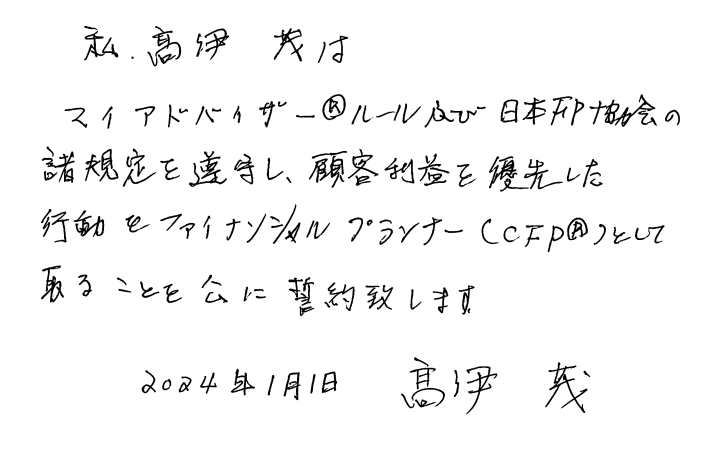 私、髙伊 茂は
マイアドバイザー®ルール及び日本FP協会の
諸規定を遵守し、顧客利益を優先した
行動をファイナンシャルプランナー(CFP®)として
取ることを公に誓約致します
2024年1月1日 髙伊 茂